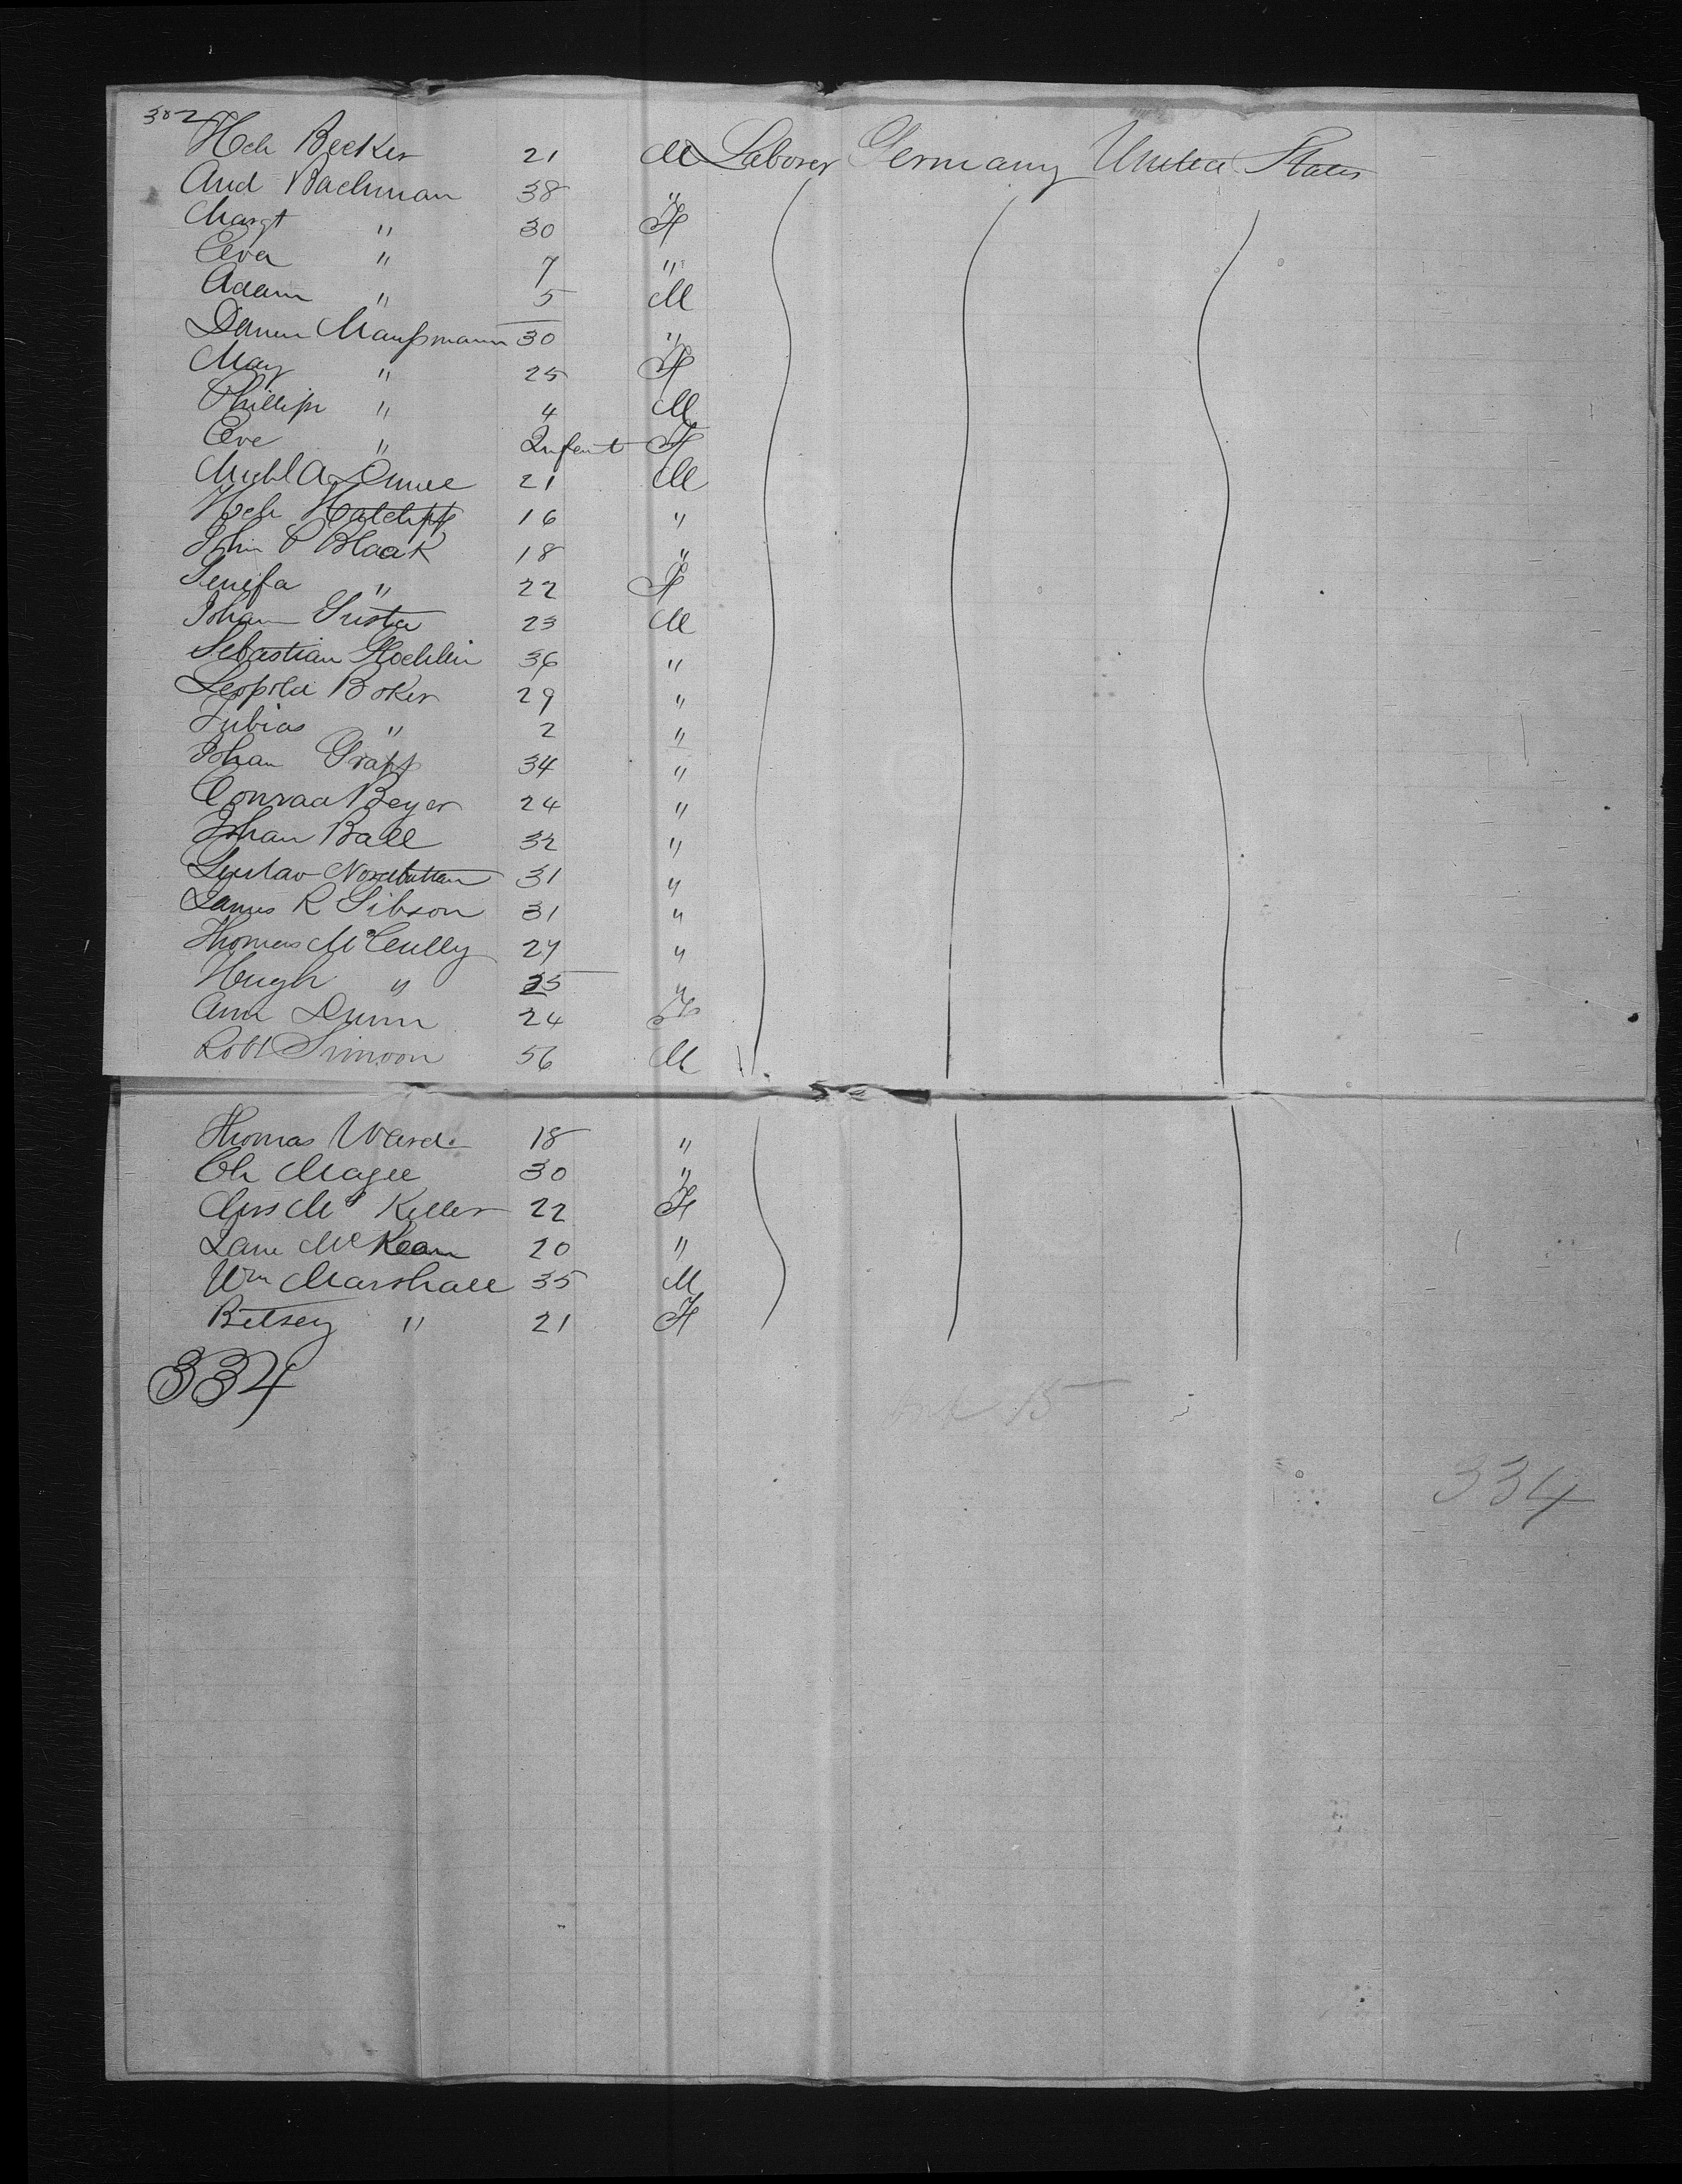 302
Hch Becker 21 M Laborer Germany United States
And Bachman 38 "
Margt " 30 F
Eva " 7 "
Adam " 5 M
Maußmann 30 "
May " 25 F
Phillip " 4 M
Eve " Infant F
Michl A 21 M
Hch 16 "
John P Blaak 18 "
Senefa " 22 F
Johan 23 M
Sebastian 36 "
Leopold Boker 29 "
Tubias " 2 "
Johan Grapp 34 "
Conrad Beyer 24 "
Johan Ball 32 "
Gustav 31 "
James R Gibson 31 "
Thomas McCully 27 "
Hugh " 35 "
Ann Dunn 24 F
Robt Simson 56 M
Thomas Ward 18 "
Ch Magee 30 "
Mrs Mc Keller 22 F
Jane McKean 20 "
Wm Marshall 35 M
Betsey " 21 F
334
15
334